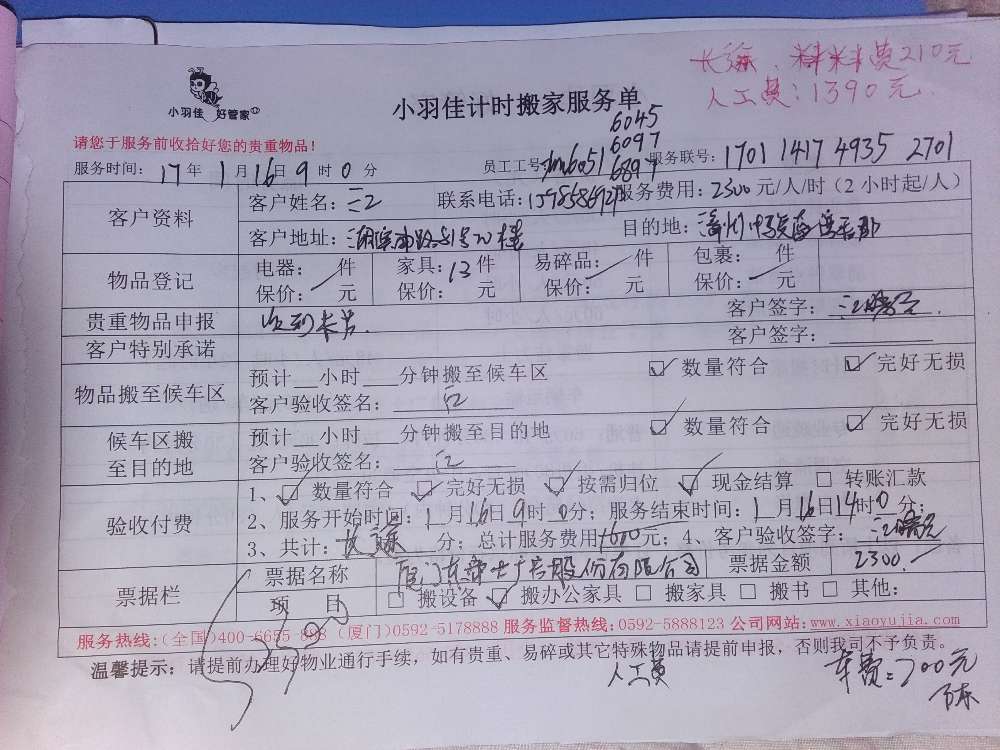 长途、材料费210元
人工费:1390元.
小羽佳 好管家
小羽佳计时搬家服务单
6045
6097
6897
请您于服务前收拾好您的贵重物品!
服务时间: 17 年 1 月 16 日 9 时 0 分 员工工号: 6051 服务联号: 1701 1417 4935 2701
客户资料 客户姓名: 江 联系电话: 服务费用: 2300 元/人/时 (2 小时起/人)
客户地址: 目的地: 漳州
物品登记 电器: 件 家具: 13 件 易碎品: 件 包裹: 件
保价: 元 保价: 元 保价: 元 保价: 元
贵重物品申报 收到卡片. 客户签字:
客户特别承诺 客户签字:
物品搬至候车区 预计 小时 分钟搬至候车区 ☑ 数量符合 ☑ 完好无损
客户验收签名: 江
候车区搬至目的地 预计 小时 分钟搬至目的地 ☑ 数量符合 ☑ 完好无损
客户验收签名: 江
验收付费 1、☑ 数量符合 ☑ 完好无损 ☑ 按需归位 ☑ 现金结算 □ 转账汇款
2、服务开始时间: 1 月 16 日 9 时 0 分; 服务结束时间: 1 月 16 日 14 时 0 分;
3、共计: 长途 分; 总计服务费用 1600 元; 4、客户验收签字:
票据栏 票据名称 厦门 广告股份有限公司 票据金额 2300.
项 目 □ 搬设备 ☑ 搬办公家具 □ 搬家具 □ 搬书 □ 其他:
2300
服务热线: (全国)400-6685-888 (厦门)0592-5178888 服务监督热线: 0592-5888123 公司网站: www.xiaoyujia.com
温馨提示: 请提前办理好物业通行手续, 如有贵重、易碎或其它特殊物品请提前申报, 否则我司不予负责。
人工费 车费=700元